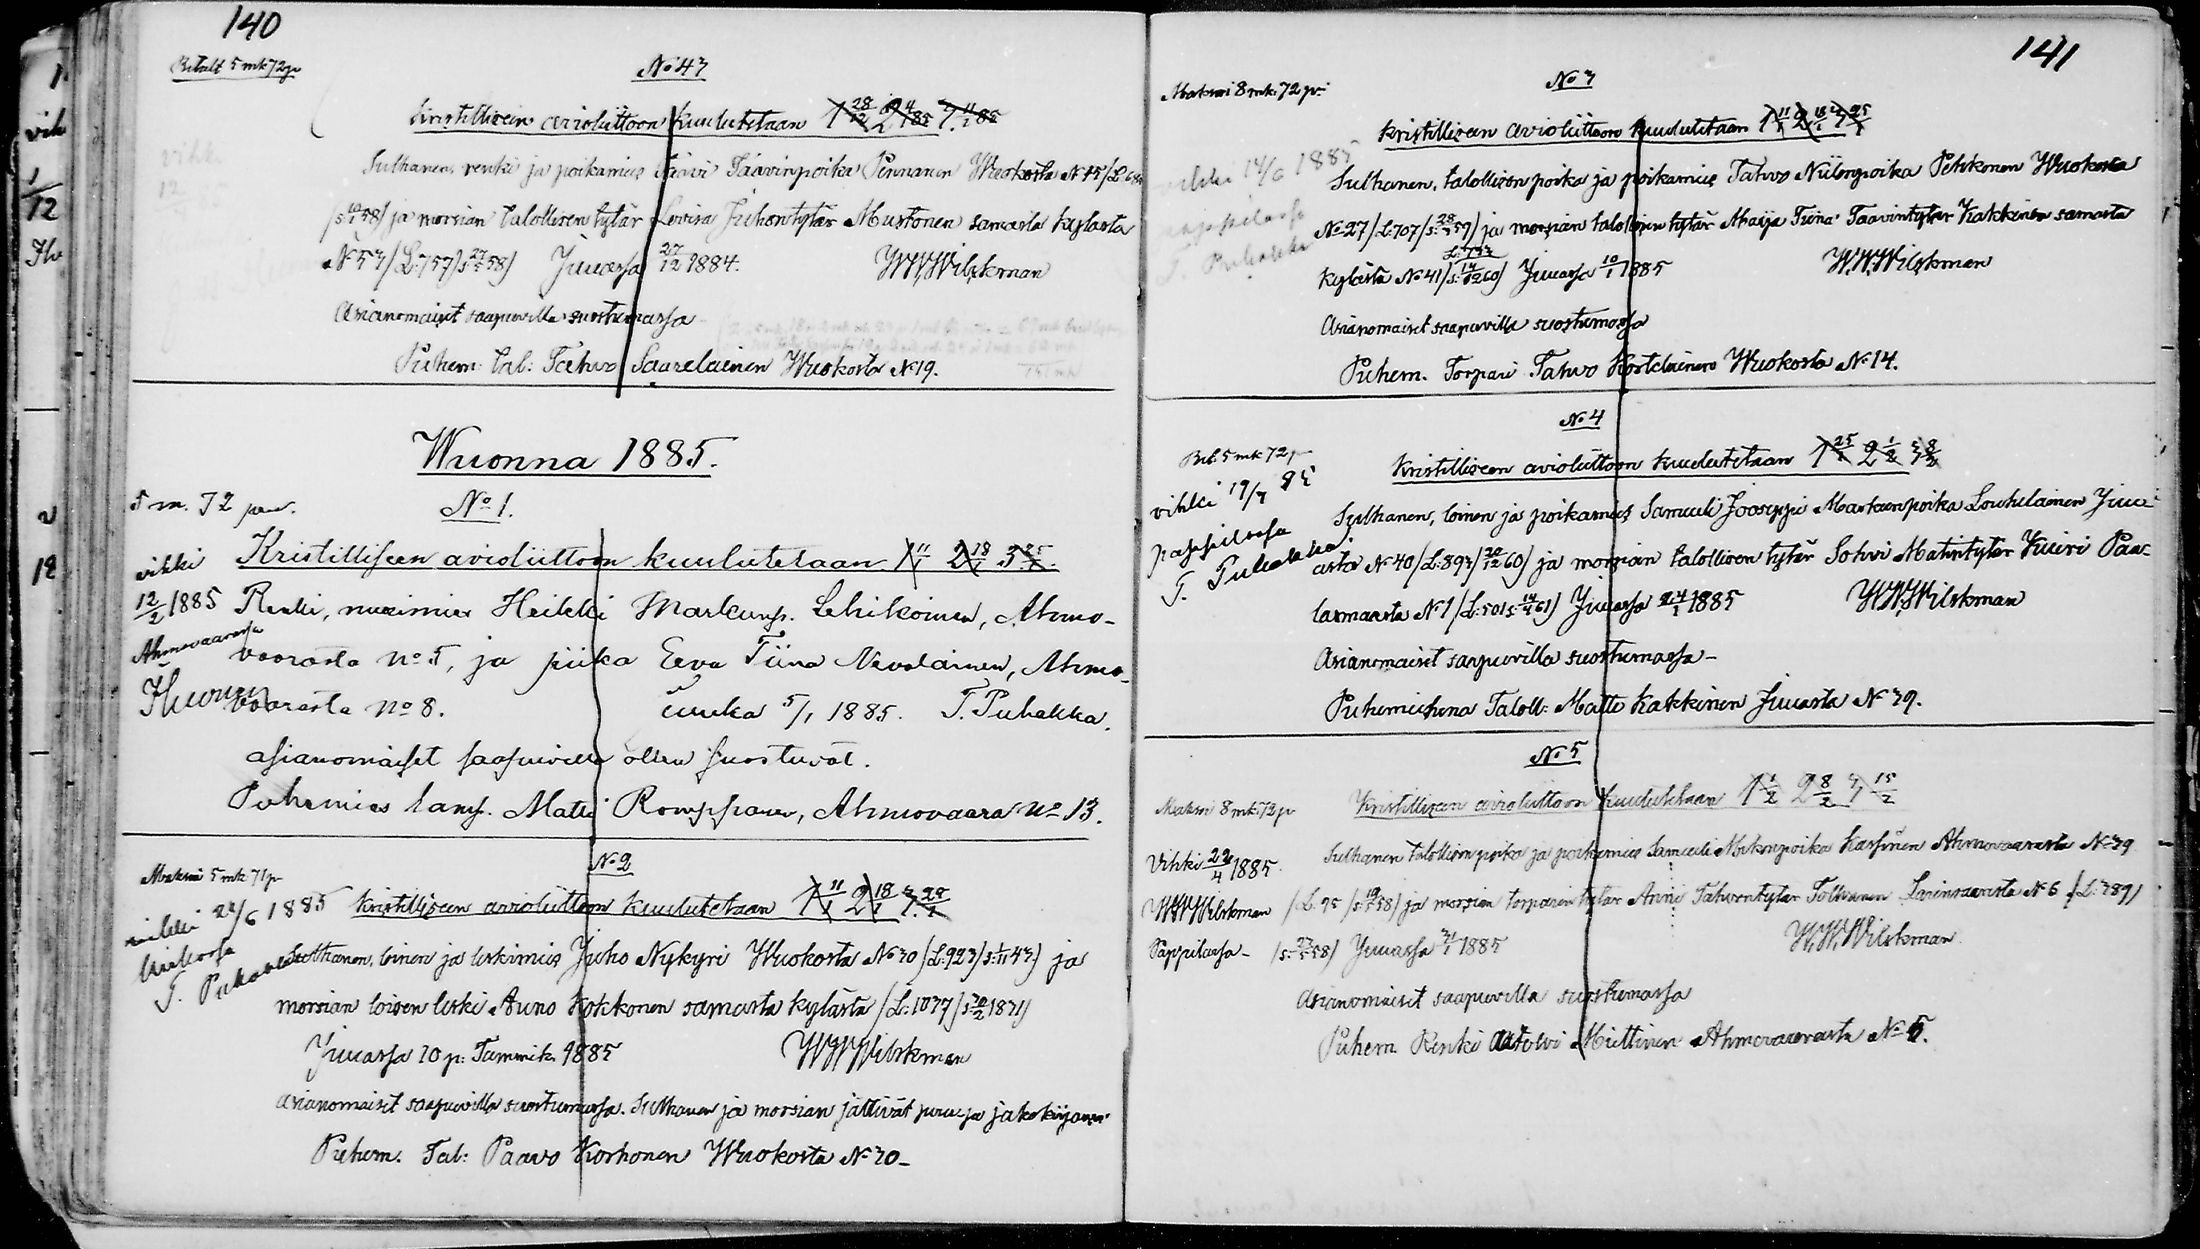 140
5 mk 72 p
No 43
Kristilliseen avioliittoon kuulutetaan 1 28/12 2 4/1 85 3 11/1 85
Sulhanen, renki ja poikamies Taavi Taavinpoika Pennanen Wuokosta No 45
ja morsian talollisen tytär Lovisa Juhontytär Mustonen samasta kylästä
No 53 /L: 757/ Juuassa 27/12 1884. WWWilskman
Asianomaiset saapuvilla suostumassa
Puhem. tal: Tahvo Saarelainen Wuokosta No 19.
Wuonna 1885.
5 m. 72 pen.
No 1.
Kristilliseen avioliittoon kuulutetaan 1 11/1 2 18/1 3 25/1.
vihki
12/2 1885
Ahmovaarassa
Renki, nuorimies Heikki Markunp. Lehikoinen, Ahmo-
vaarasta No 5, ja piika Eeva Tiina Nevalainen, Ahmo-
vaarasta No 8. Juuka 5/1 1885. T. Puhakka.
asianomaiset saapuvilla ollen suostuvat.
Puhemies lamp. Matti Romppanen, Ahmovaara No 13.
Maksoi 5 mk 71 p
No 2
Kristilliseen avioliittoon kuulutetaan 1 11/1 2 18/1 3 25/1
vihki 24/6 1885
T. Puhakka
Sulhanen, loinen ja leskimies Juho Nykyri Wuokosta No 30 /L: 923/ ja
morsian loisen leski Auno Kokkonen samasta kylästä /L: 1077/
Juuassa 10 p: Tammik. 1885 WWWilskman
Asianomaiset saapuvilla suostumassa. Sulhanen ja morsian jättivät peru- ja jakokirjansa
Puhem. Tal: Paavo Korhonen Wuokosta No 20-
141
Maksoi 8 mk. 72 pi
No 3
Kristilliseen avioliittoon kuulutetaan 1 11/1 2 18/1 3 25/1
vihki 14/6 1885
pappilassa
T. Puhakka
Sulhanen, talollisen poika ja poikamies Tahvo Niilonpoika Pehkonen Wuokosta
No 27 /L: 707/ s: 28/3 59/ ja morsian talollisen tytär Maija Tiina Taavintytär Kakkinen samasta
kylästä No 41 /s: 14/12 60/ Juuassa 10/1 1885 W.W.Wilskman
Asianomaiset saapuvilla suostumassa
Puhem. Torpari Tahvo Kostelainen Wuokosta No 14.
No 4
5 mk 72 p
Kristilliseen avioliittoon kuulutetaan 1 25/1 2 1/2 3 8/2
vihki 19/3 85
pappilassa
T. Puhakka
Sulhanen, loinen ja poikamies Samuli Jooseppi Markunpoika Louhelainen Juu-
asta No 40 /L: 893/ ja morsian talollisen tytär Sohvi Matintytär Kuivi Paa-
lasmaasta No 1 /L: 501 s: 14/4 61/ Juuassa 24/1 1885 WWWilskman
Asianomaiset saapuvilla suostumassa-
Puhemiehenä Taloll: Matti Kakkinen Juuasta No 39.
No 5
Maksoi 8 mk 72 p
Kristilliseen avioliittoon kuulutetaan 1 1/2 2 8/2 3 15/2
Vihki 22/4 1885.
WWWilskman
Pappilassa-
Sulhanen talollisen poika ja poikamies Samuli Mikonpoika Karhinen Ahmovaarasta No 39
/L: 95/ ja morsian torparin tytär Anni Tahvontytär Tolkkanen Larinsaaresta No 6 /L: 389/
Juuassa 31/1 1885 W.W.Wilskman
Asianomaiset saapuvilla suostumassa
Puhem. Renki Miettinen Ahmovaarasta No 5.